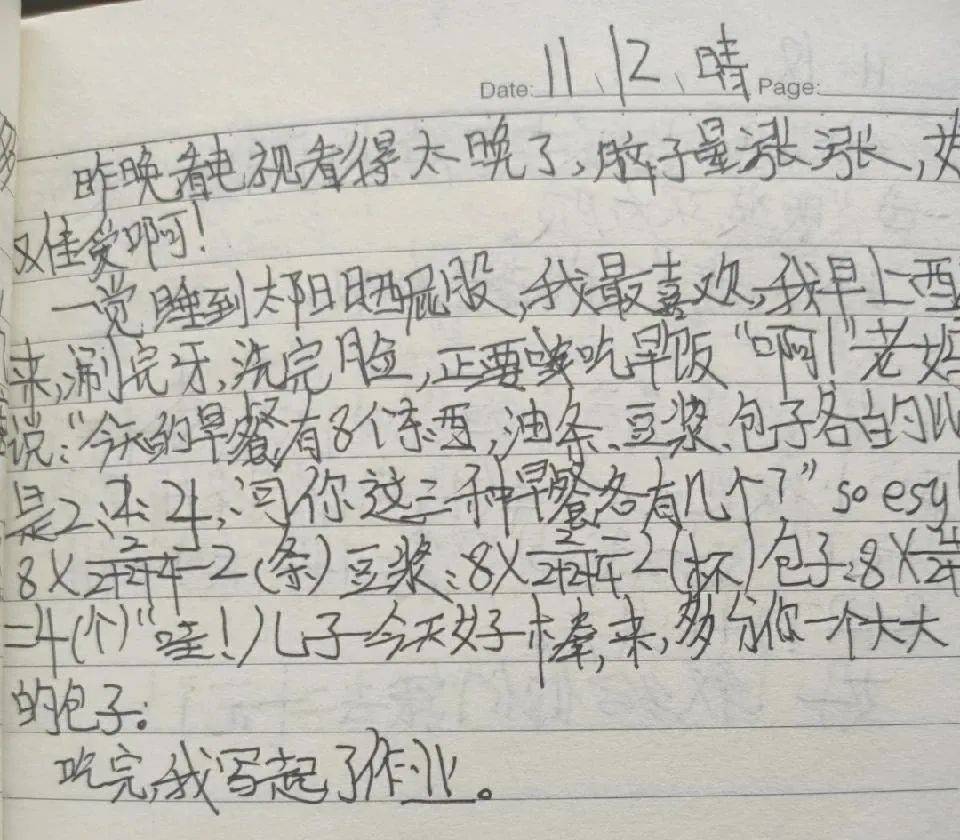 Date: 11、12、晴 Page:
昨晚看电视看得太晚了,脑子晕涨涨,
难受啊!
一觉睡到太阳晒屁股,我最喜欢,我早上
来,涮完牙,洗完脸,正要吃早饭“啊!”老妈
说:“今天的早餐有8个东西,油条、豆浆、包子各自的比
是2:2:4,问你这三种早餐各有几个?” so esy!
8×2/2+2+4=2(条) 豆浆:8×2/2+2+4=2(杯) 包子:8×4/2+
=4(个)“哇!儿子今天好棒,来,多分你一个大大
的包子:
吃完,我写起了作业。